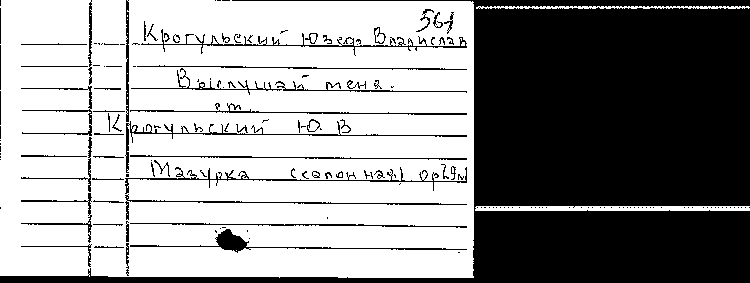 561
Крогульский Юзеф Владислав
Выслушай меня.
ст
Крогульский Ю. В
Мазурка (салонная) ор29